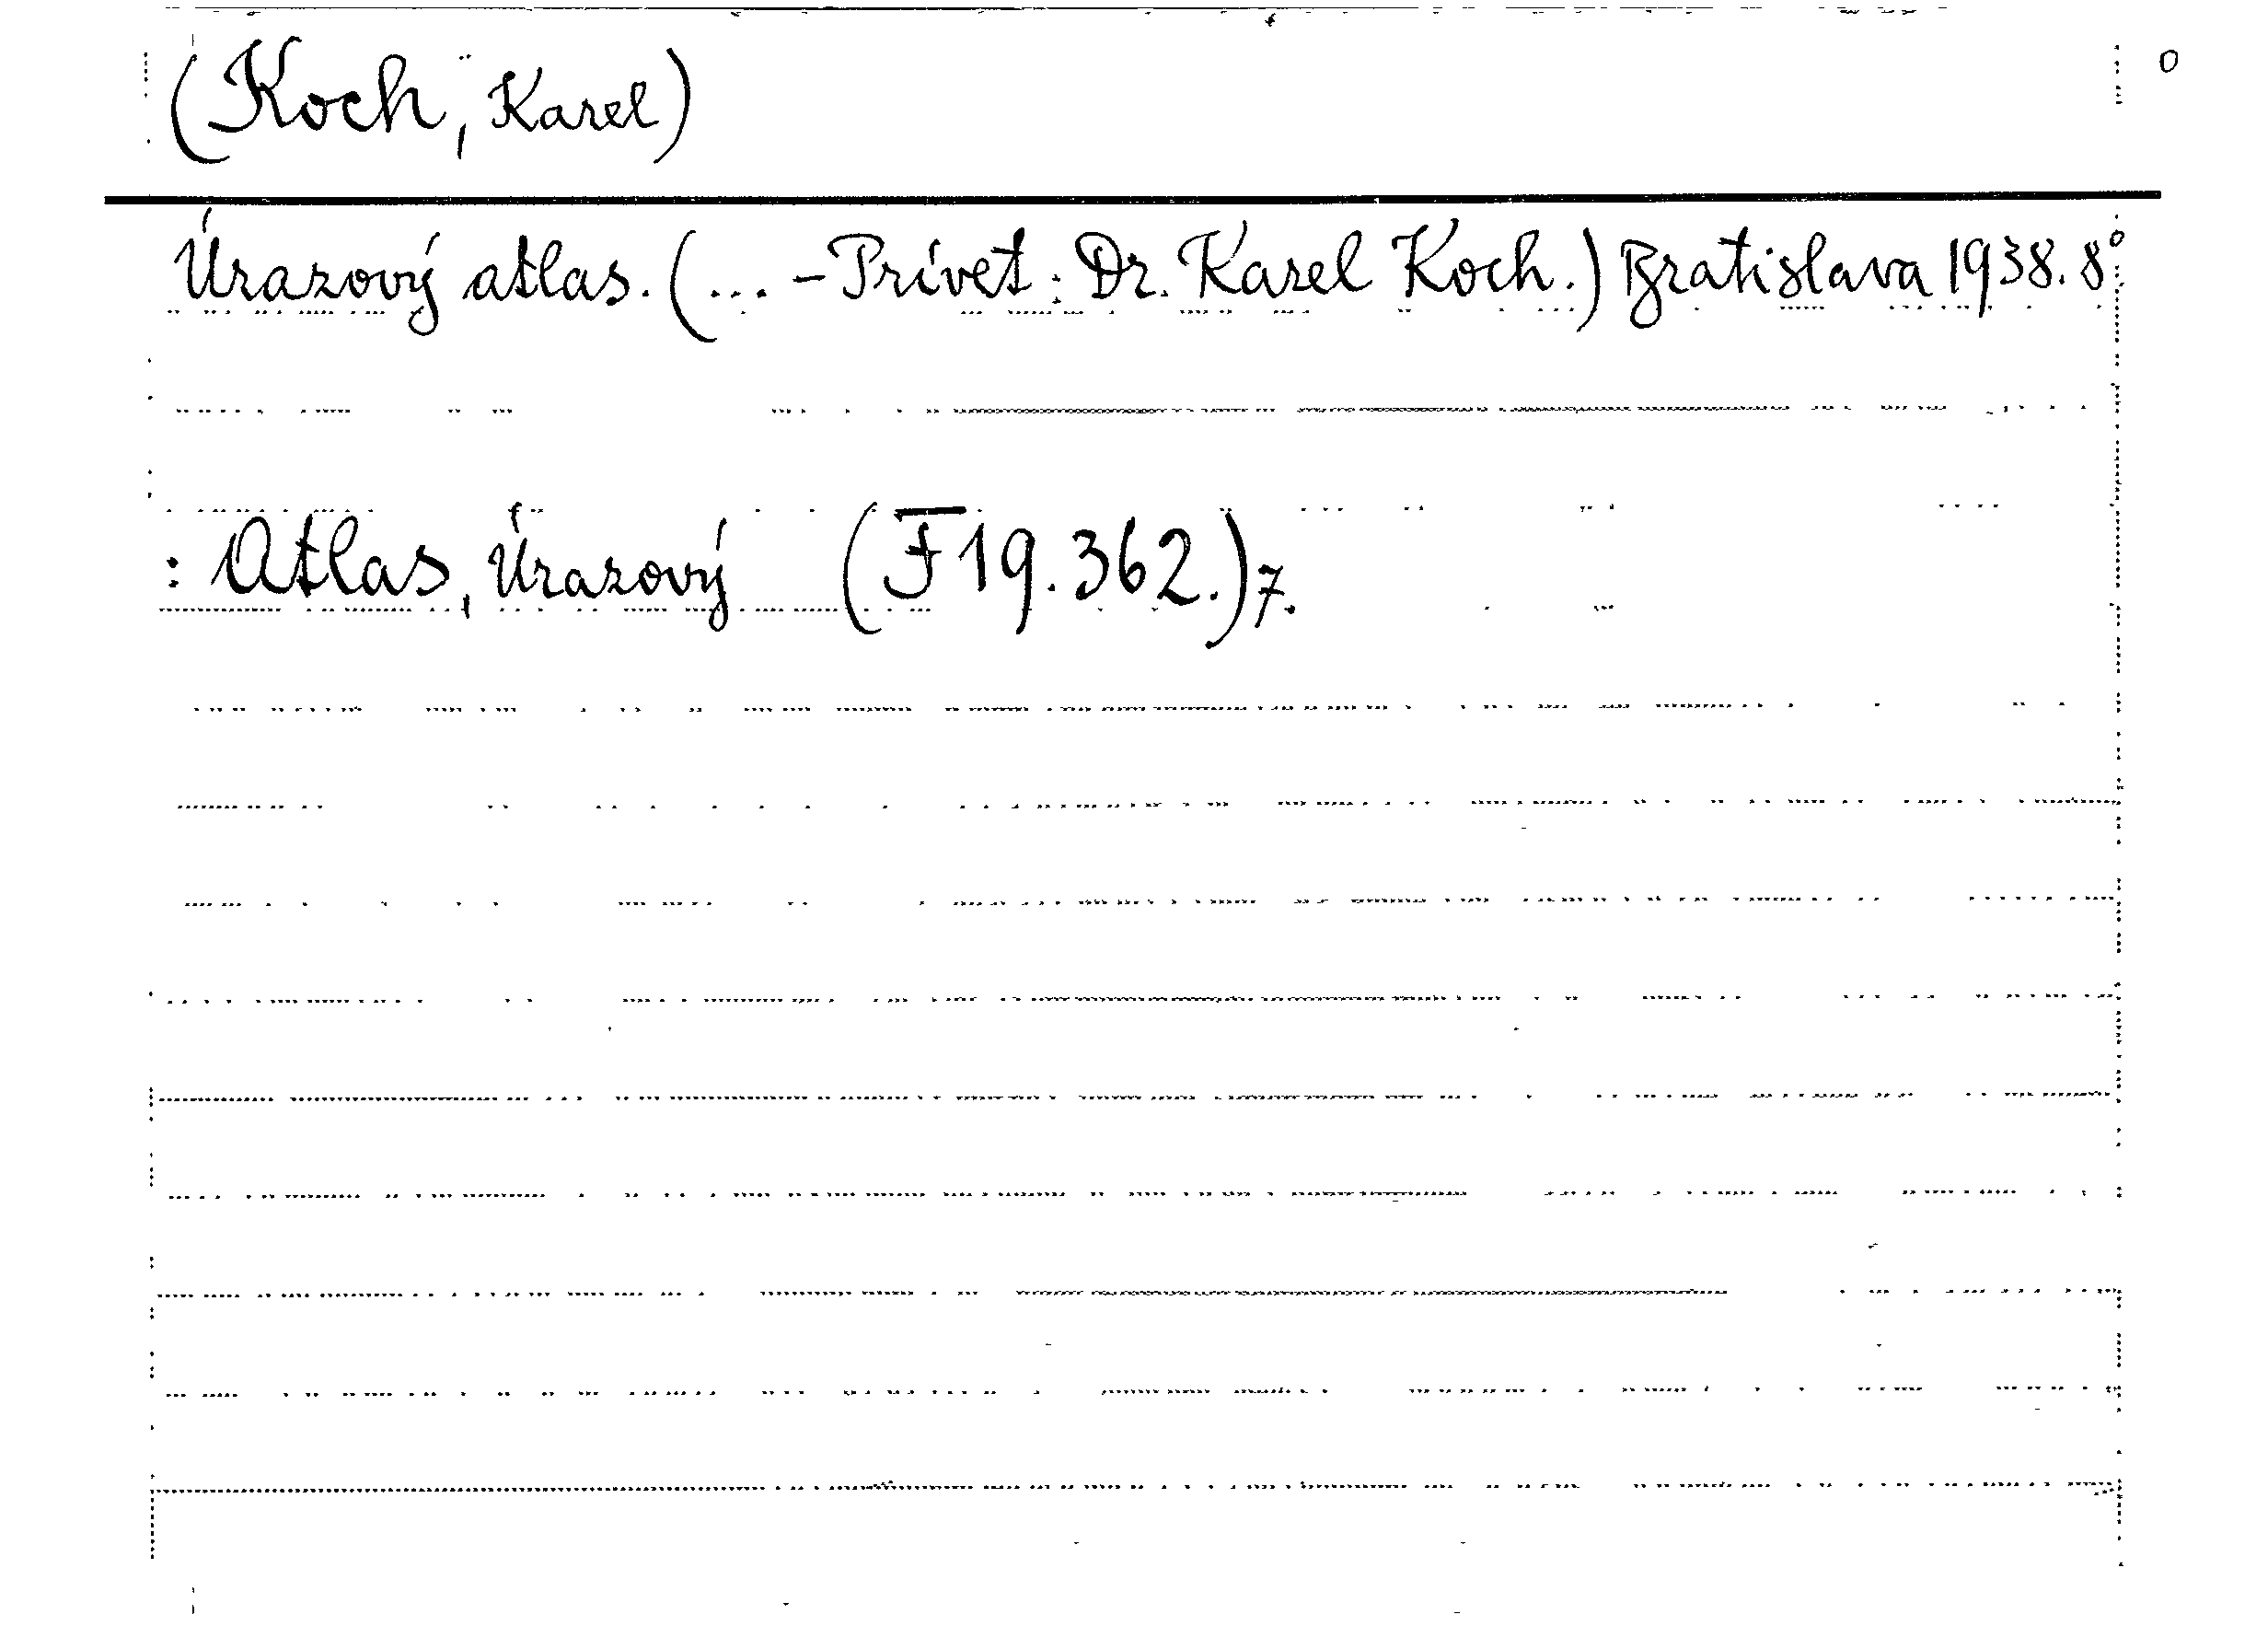 (Koch, Karel) o
Úrazový atlas. (... - Prívet: Dr. Karel Koch.) Bratislava 1938. 8°
: Atlas, Úrazový (F 19.362.) 7.